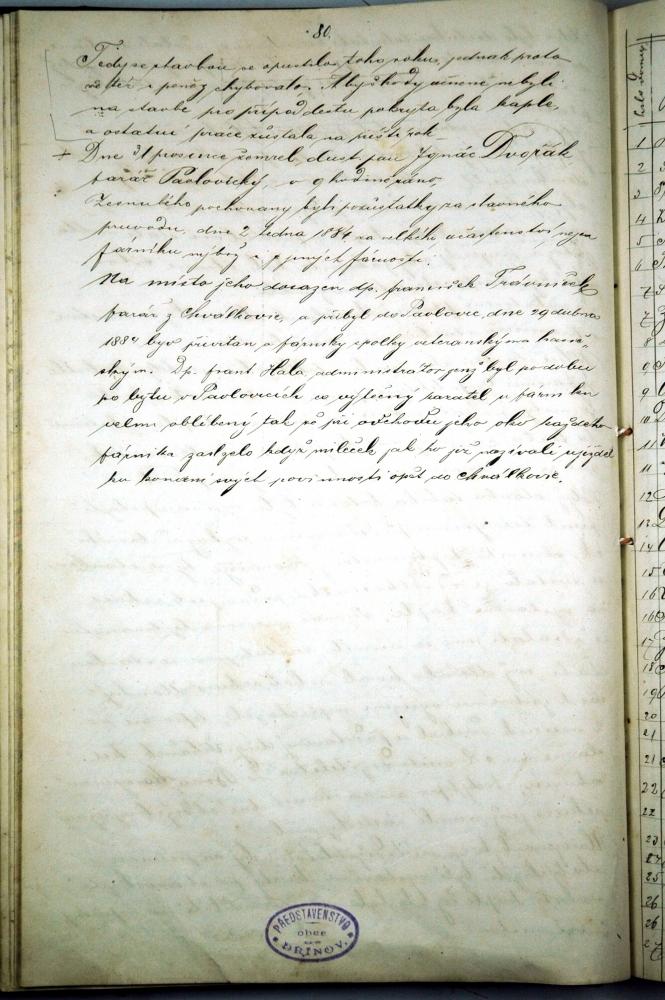 80.
Tedy se stavbou se opustilo toho roku, jednak proto
že též i peněz chybovalo. Aby škody učiněné nebyli
na stavbě pro případ deštu pokryta byla kaple,
a ostatní práce zůstala na příští rok.
+ Dne 31 prosence zemřel, dust. pan Ignác Dvořák
farář Pavlovický, o 9 hodině ráno.
Zesnulého pochovany byli pozůstatky za slavného
pruvodu, dne 2 ledna 1884 za velkého učastenství nejen
farníku nybrž i z jiných farností.
Na místo jeho dosazen dp. František Trávníček
farář z Chválkovic, a přibyl do Pavlovic, dne 29 dubna
1884 byv přivítan a farníky spolky veteranským a hasič-
ským. Dp. frant. Hala administrator jenž byl po dobu
po bytu v Pavlovicích co výtečný kazatel u farníku
velmi oblíbený tak že při odchodu jeho oko každého
farníka zaslzelo když miláček jak ho již nazívali ujížděl
ku konání svých povinností opět do Chválkovic.
PŘEDSTAVENSTVO
obce
DŘÍNOV.